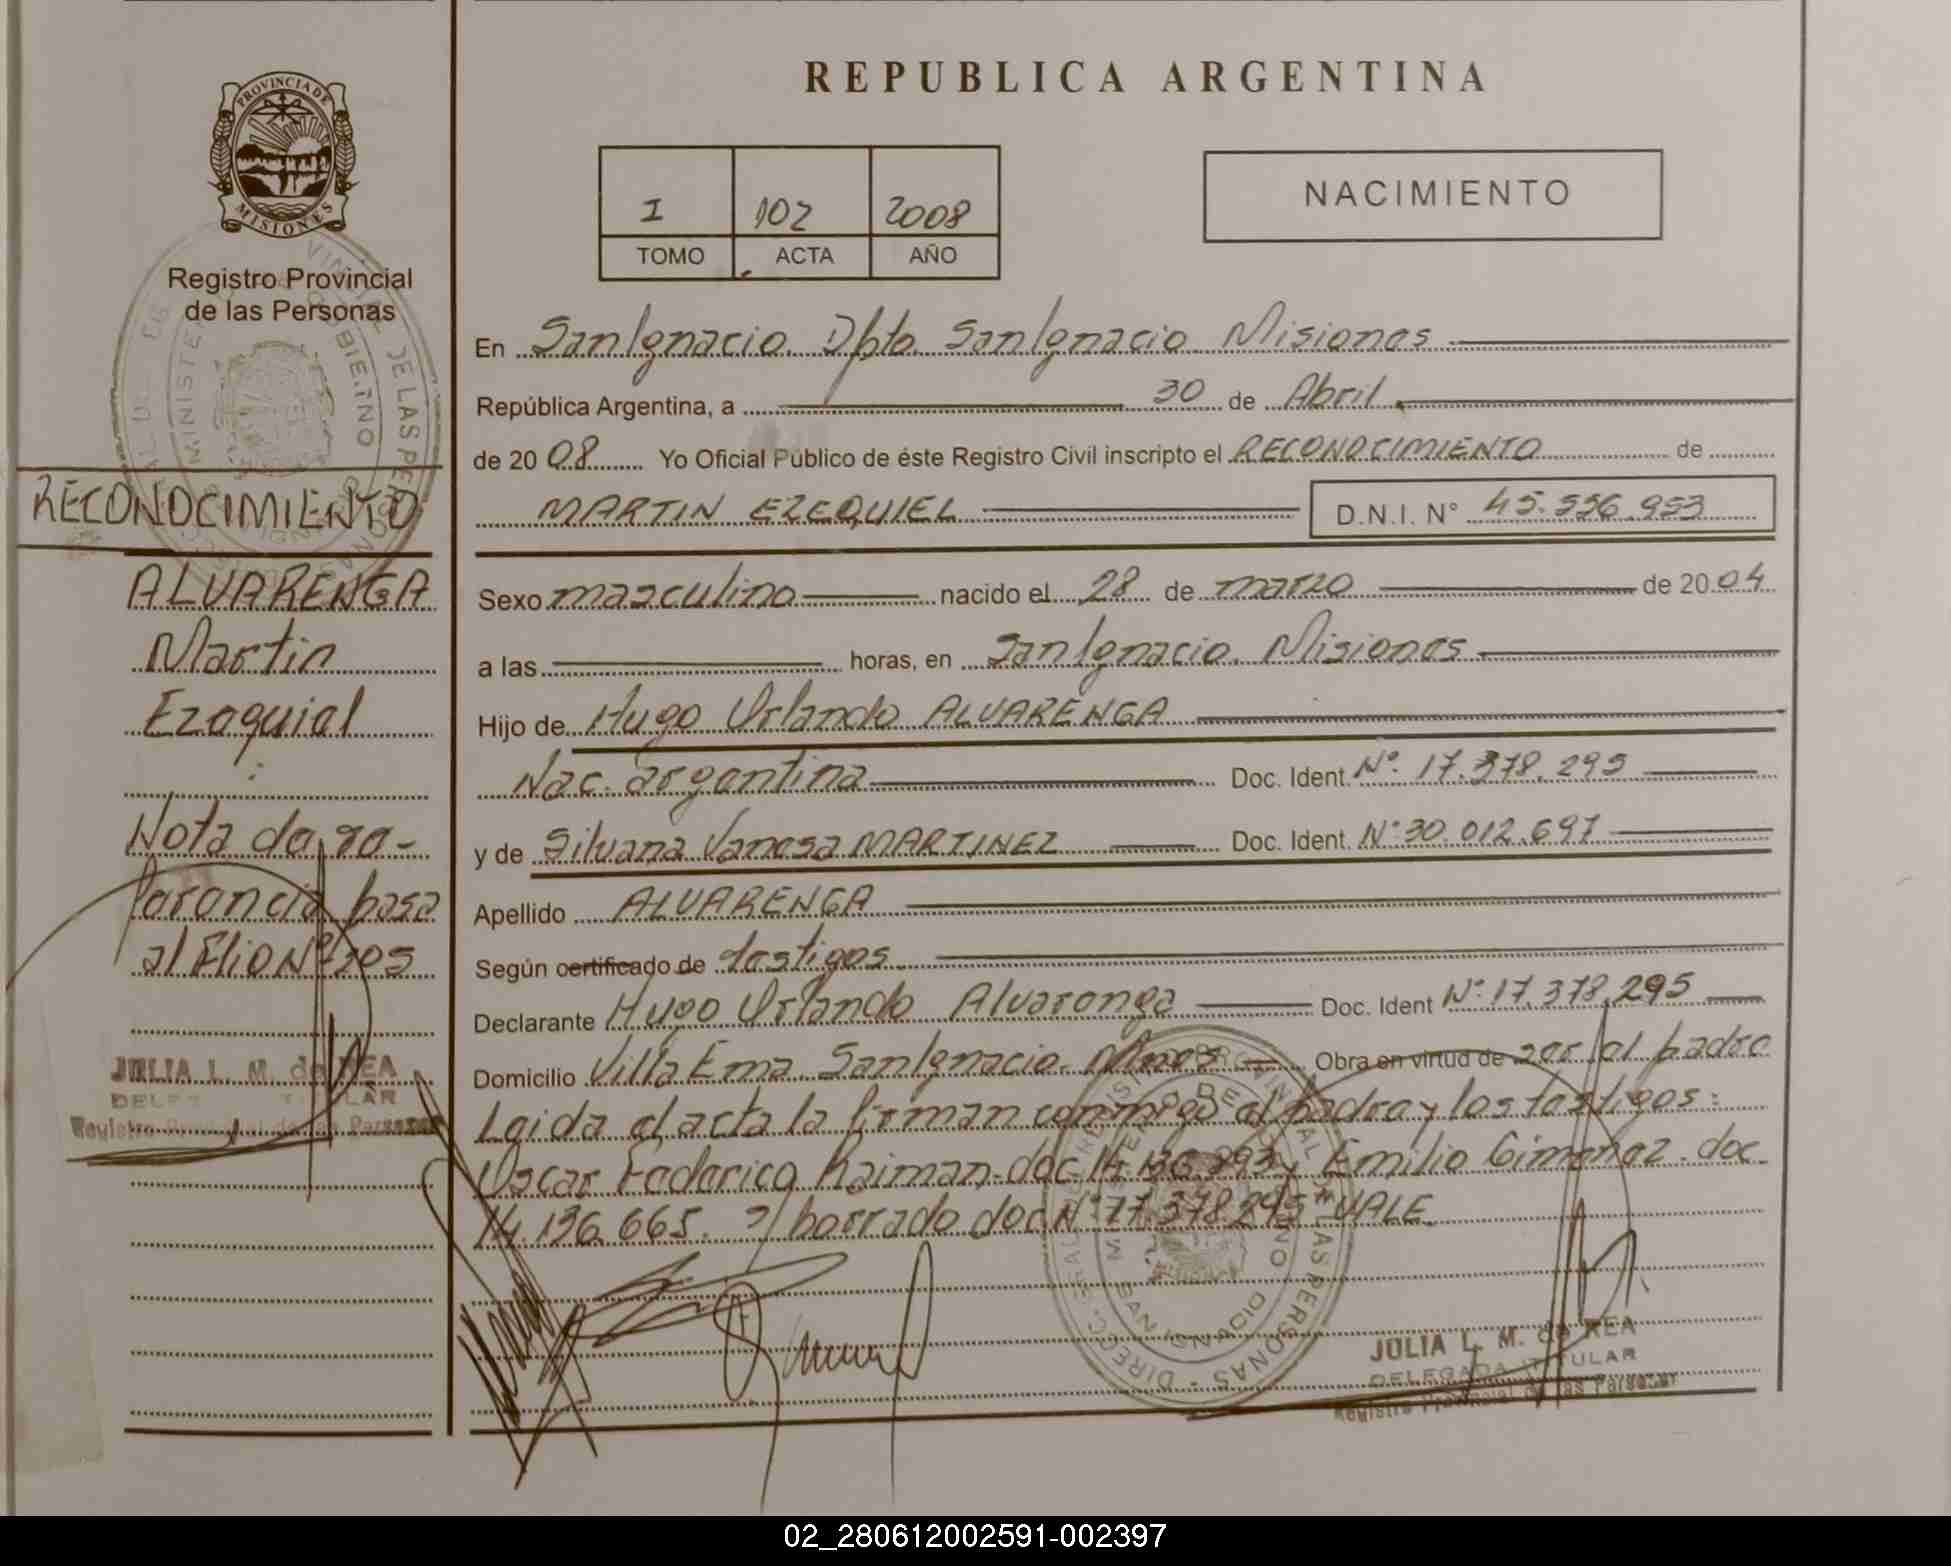 PROVINCIA DE
MISIONES
Registro Provincial
de las Personas
RECONOCIMIENTO
ALVARENGA
Martin
Ezequiel
Nota de re-
ferencia pasa
al Flio Nº 205
JULIA L. M. de REA
DELEGADA TITULAR
Registro Provincial de las Personas
REPUBLICA ARGENTINA
I 102 2008
TOMO ACTA AÑO
NACIMIENTO
En San Ignacio. Dpto. San Ignacio Misiones
República Argentina, a 30 de Abril
de 20 08 Yo Oficial Público de éste Registro Civil inscripto el RECONOCIMIENTO de
MARTIN EZEQUIEL D.N.I. N° 45.556.953
Sexo masculino nacido el 28 de marzo de 20 04
a las horas, en San Ignacio. Misiones
Hijo de Hugo Orlando ALVARENGA
Nac. argentina Doc. Ident. Nº 17.378.295
y de Silvana Vanesa MARTINEZ Doc. Ident. Nº 30.012.697
Apellido ALVARENGA
Según certificado de testigos
Declarante Hugo Orlando Alvarenga Doc. Ident Nº 17.378.295
Domicilio Villa Ema San Ignacio. Mnes Obra en virtud de ser el padre
Leida el acta la firman conmigo el padre y los testigos:
Oscar Federico Raiman doc. 14.136.893 y Emilio Gimenez. doc.
14.136.665. s/ borrado doc Nº 17.378.295 VALE
JULIA L. M. de REA
DELEGADA TITULAR
Registro Provincial de las Personas
02_280612002591-002397